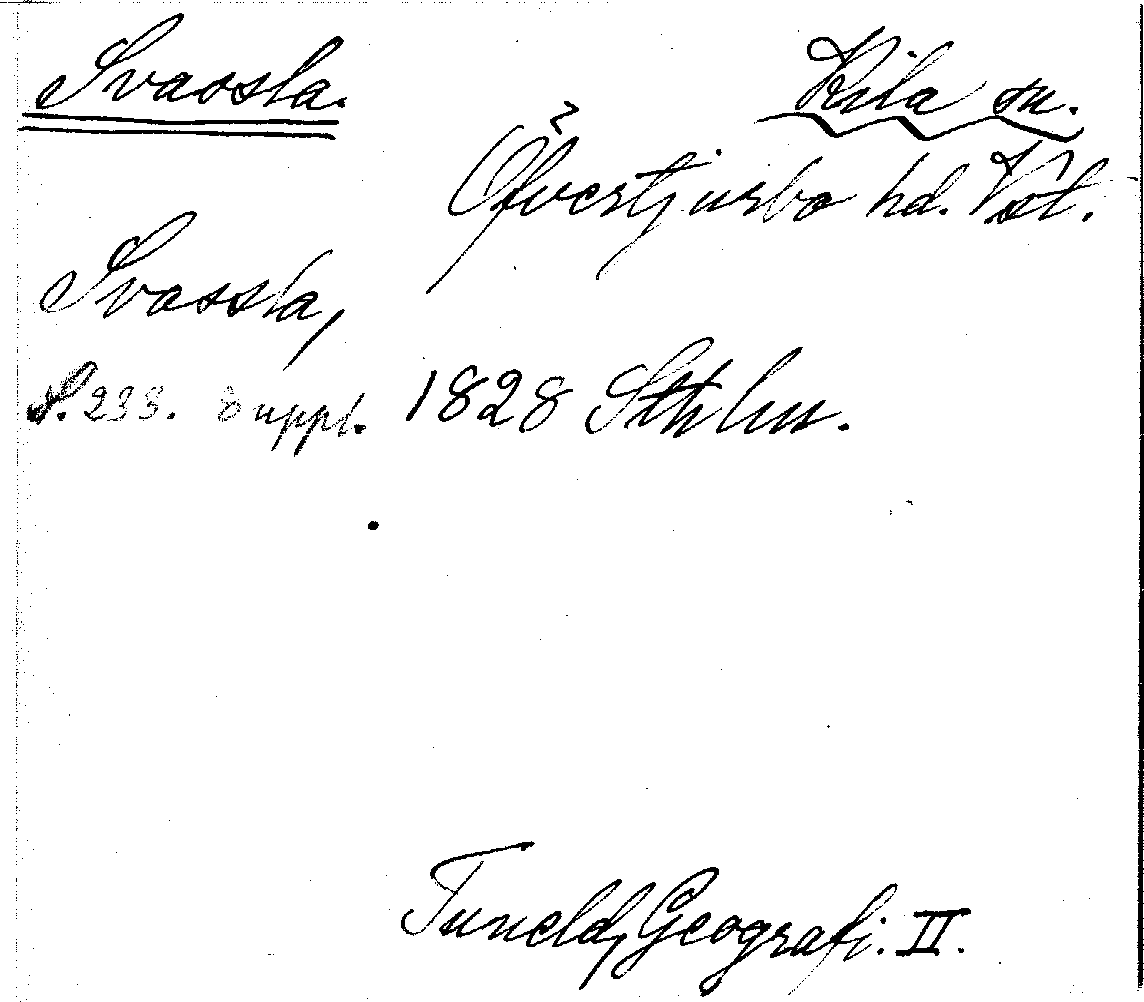 Svaosla. Kila sn.
Öfvertjurbo hd. Vstl.
Svassla,
S. 233. Suppl. 1828 Sthlm.
Tuneld, Geografi. II.